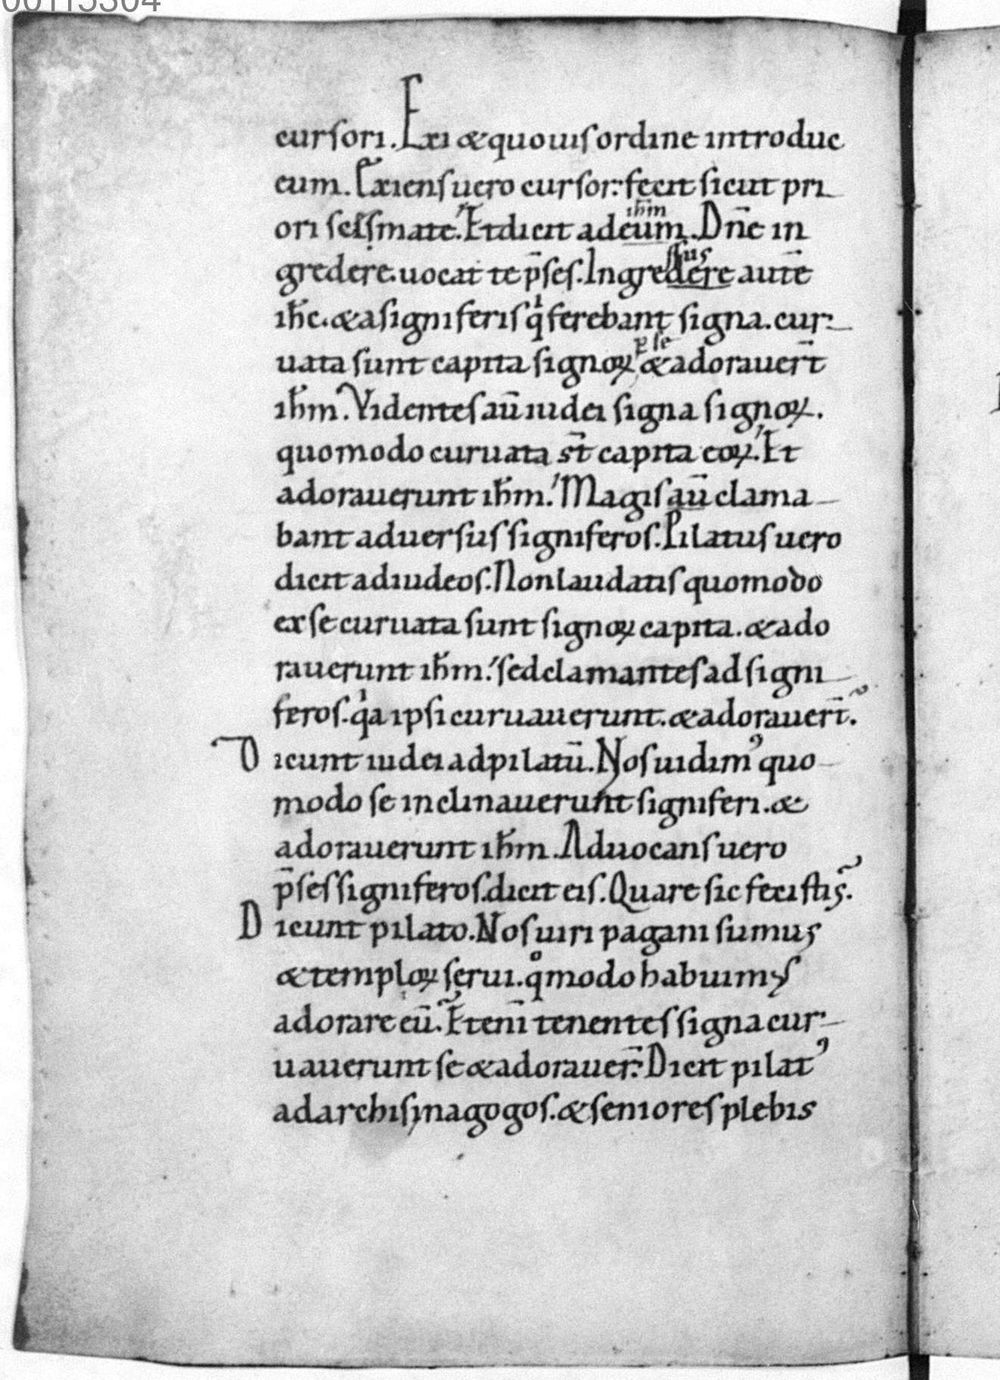 00115304
cursori. Exi & quouis ordine introduc
eum. Exiens uero cursor: fecit sicut pri
ori scismate. Et dicit ad eum ihm. Dñe in
gredere. uocat te p̄ses. Ingredere ssus autē
ihc. & a signiferis qͥ ferebant signa. cur
uata sunt capita signoꝝ p se & adorauer̄t
ihm. Videntes aū iudei signa signoꝝ.
quomodo curuata st̄ capita eoꝝ. Et
adorauerunt ihm. Magis aū clama
bant aduersus signiferos. Pilatus uero
dicit ad iudeos. Non laudatis quomodo
ex se curuata sunt signoꝝ capita. & ado
rauerunt ihm. sed clamantes ad signi
feros. qͥa ipsi curuauerunt. & adorauer̄t.
Dicunt iudei ad pilatū. Nos uidimꝰ quo
modo se inclinauerunt signiferi. &
adorauerunt ihm. Aduocans uero
p̄ses signiferos. dicit eis. Quare sic fecistis.
Dicunt pilato. Nos uiri pagani sumus
& temploꝝ serui. qͦmodo habuimus
adorare eū. Etenī tenentes signa cur
uauerunt se & adorauer̄. Dicit pilatꝰ
ad archisynagogos. & seniores plebis